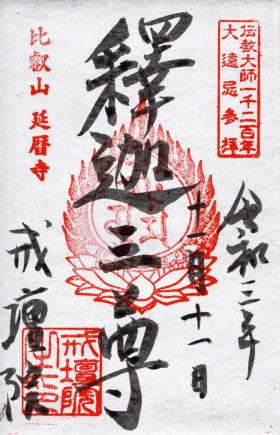 伝教大師一千二百年
大遠忌参拝
令和三年
十一月十一日
釋迦三尊
比叡山 延暦寺
戒壇院
戒壇院